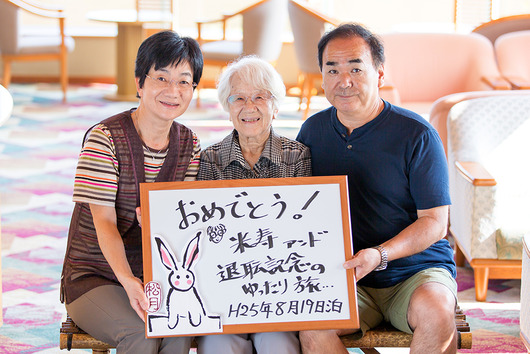 おめでとう!
米寿 アンド
退耺記念の
ゆったり旅…
H25年8月19日泊